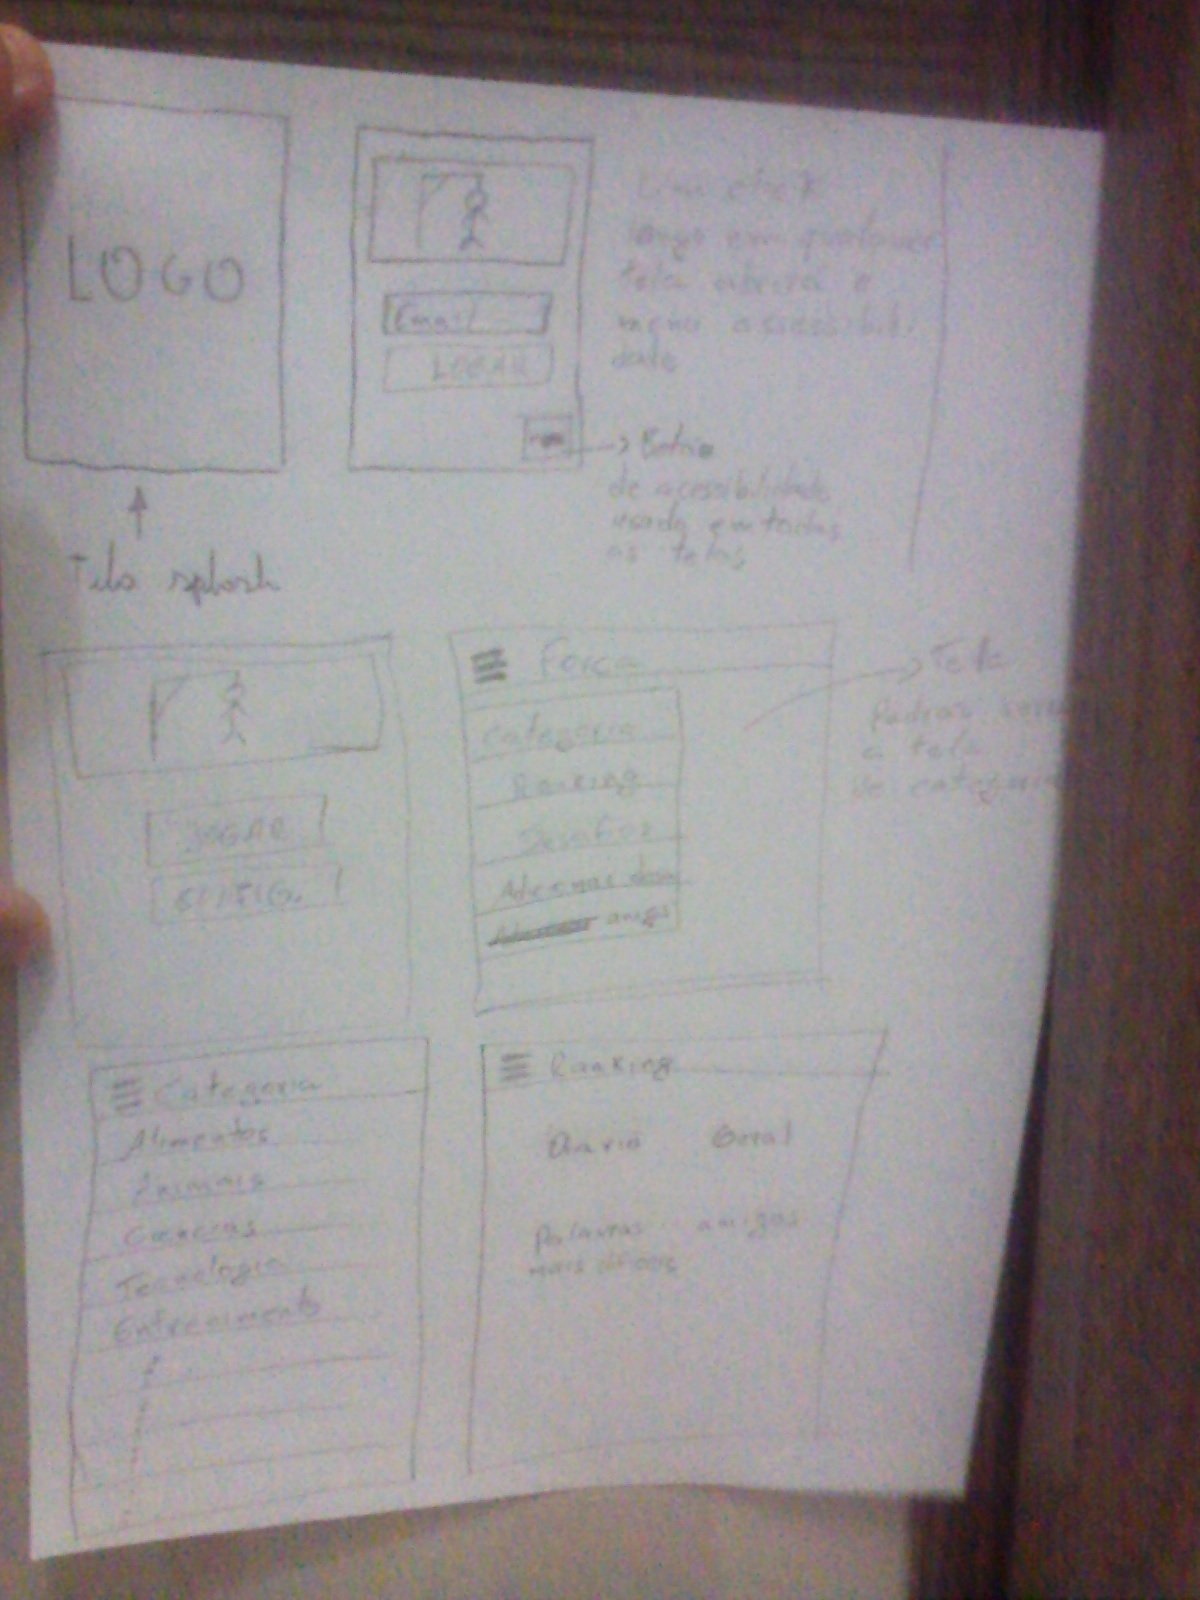 LOGO
Tela splash
Email
LOGAR
Um click
longo em qualquer
tela abrirá o
menu
dade
Botão
de acessibilidade
usado em todas
as telas
JOGAR
CONFIG.
Forca
Categoria
Ranking
Desafios
Adicionar
amigo
Tela
Padrão será
a tela
de categoria
Categoria
Alimentos
Animais
Ciências
Tecnologia
Entretenimento
Ranking
Diario Geral
Palavras amigos
mais difíceis